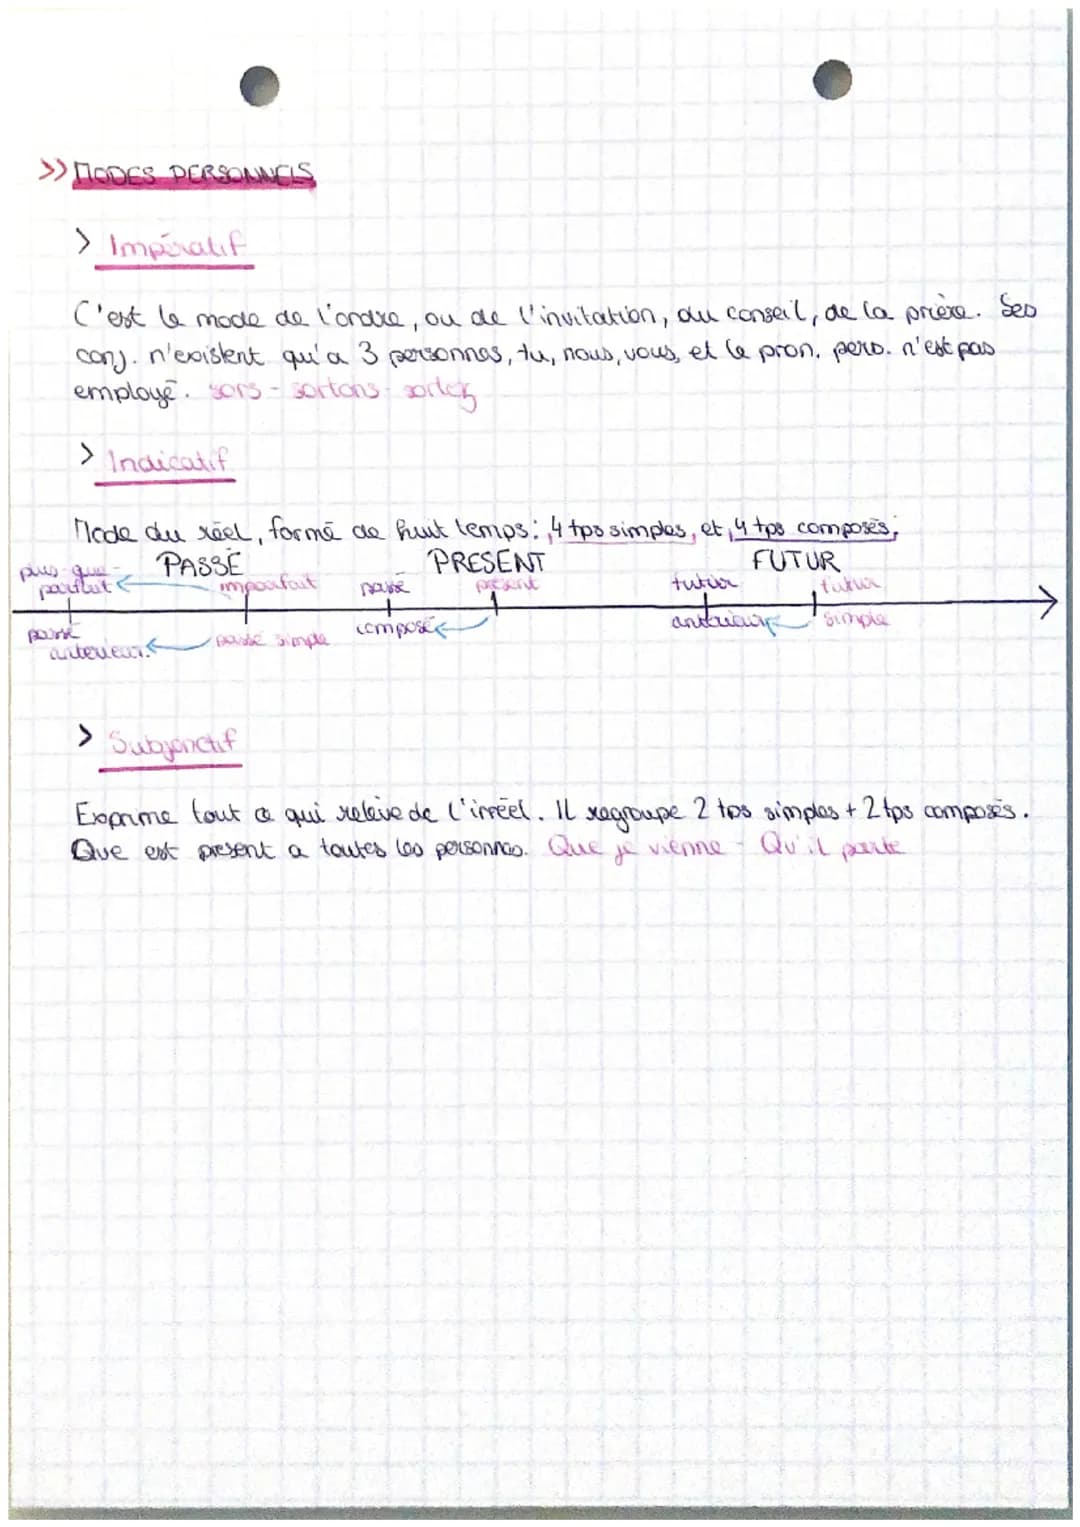 >> MODES PERSONNELS
> Impératif
C'est le mode de l'ordre, ou de l'invitation, du conseil, de la prière. Ses
conj. n'existent qu'a 3 personnes, tu, nous, vous, et le pron. pers. n'est pas
employé. sors - sortons - sortez
> Indicatif
Mode du réel, formé de huit temps: 4 tps simples, et 4 tps composés.
PASSÉ PRESENT FUTUR
plus-que-parfait imparfait passé présent futur futur
passé antérieur passé simple composé antérieur simple
> Subjonctif
Exprime tout ce qui relève de l'irréel. Il regroupe 2 tps simples + 2 tps composés.
Que est present a toutes les personnes. Que je vienne - Qu'il parte